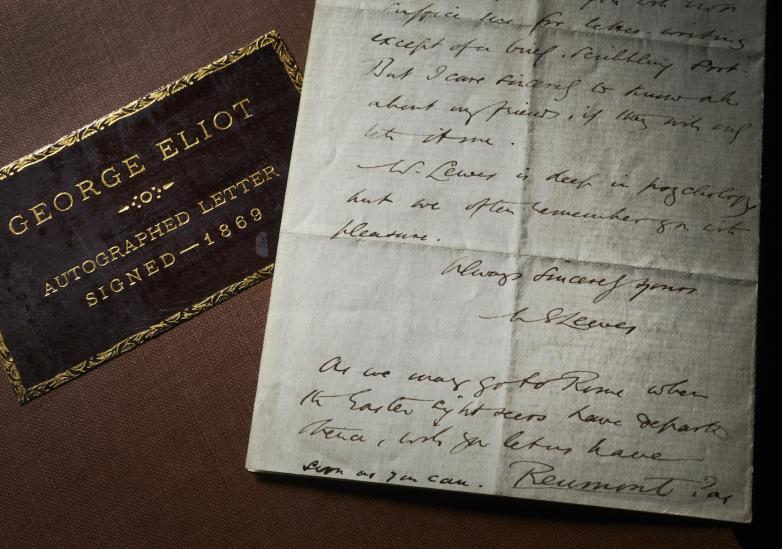 GEORGE ELIOT
AUTOGRAPHED LETTER
SIGNED—1869
for letter writing
except of a brief, scribbling sort.
But I care sincerely to know all
about my friends, if they will only
let me.
Mr. Lewes is deep in psychology
but we often remember you with
pleasure.
Always sincerely yours
M E Lewes
As we may go to Rome when
the Easter sight seers have departed
thence, will you let us have
Reumont ? as
soon as you can.